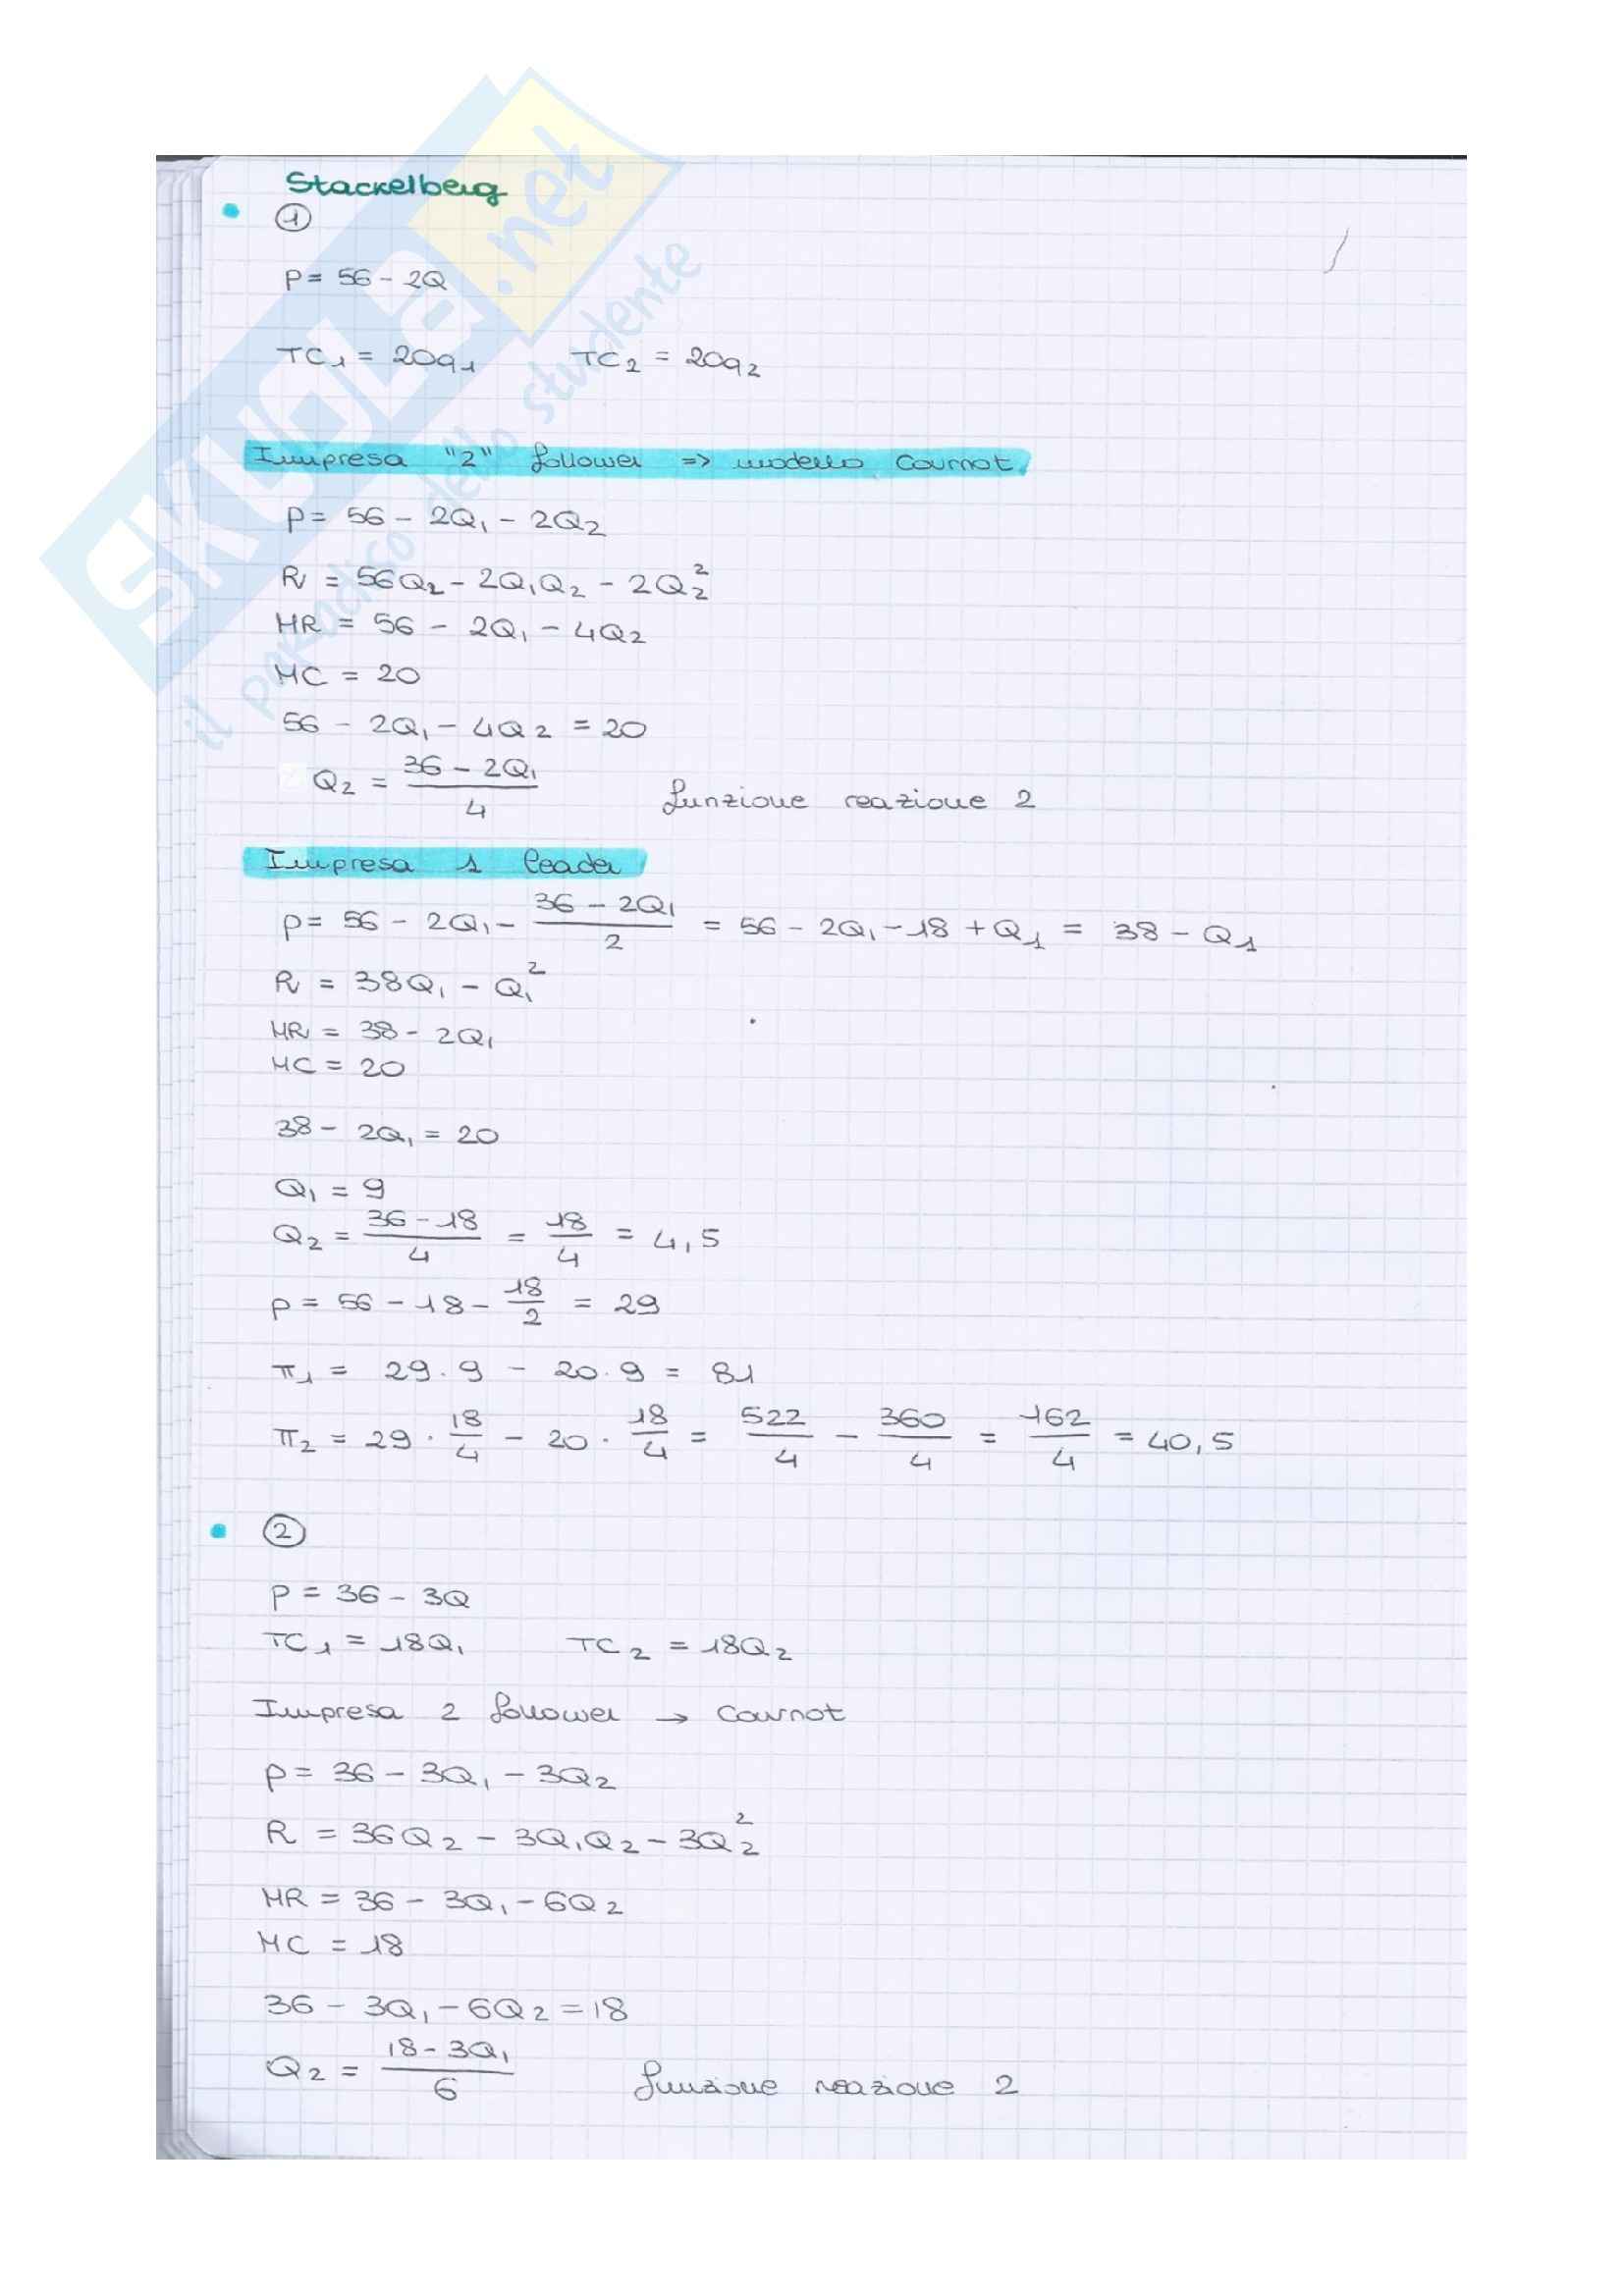 SKUOLA.net
il paradiso dello studente
Stackelberg
1
P = 56 - 2Q
TC₁ = 20q₁ TC₂ = 20q₂
Impresa "2" follower => modello Cournot
P = 56 - 2Q₁ - 2Q₂
R = 56Q₂ - 2Q₁Q₂ - 2Q₂²
MR = 56 - 2Q₁ - 4Q₂
MC = 20
56 - 2Q₁ - 4Q₂ = 20
Q₂ = (36 - 2Q₁)/4 funzione reazione 2
Impresa 1 leader
P = 56 - 2Q₁ - (36 - 2Q₁)/2 = 56 - 2Q₁ - 18 + Q₁ = 38 - Q₁
R = 38Q₁ - Q₁²
MR = 38 - 2Q₁
MC = 20
38 - 2Q₁ = 20
Q₁ = 9
Q₂ = (36 - 18)/4 = 18/4 = 4,5
P = 56 - 18 - 18/2 = 29
π₁ = 29 · 9 - 20 · 9 = 81
π₂ = 29 · 18/4 - 20 · 18/4 = 522/4 - 360/4 = 162/4 = 40,5
2
P = 36 - 3Q
TC₁ = 18Q₁ TC₂ = 18Q₂
Impresa 2 follower → Cournot
P = 36 - 3Q₁ - 3Q₂
R = 36Q₂ - 3Q₁Q₂ - 3Q₂²
MR = 36 - 3Q₁ - 6Q₂
MC = 18
36 - 3Q₁ - 6Q₂ = 18
Q₂ = (18 - 3Q₁)/6 funzione reazione 2